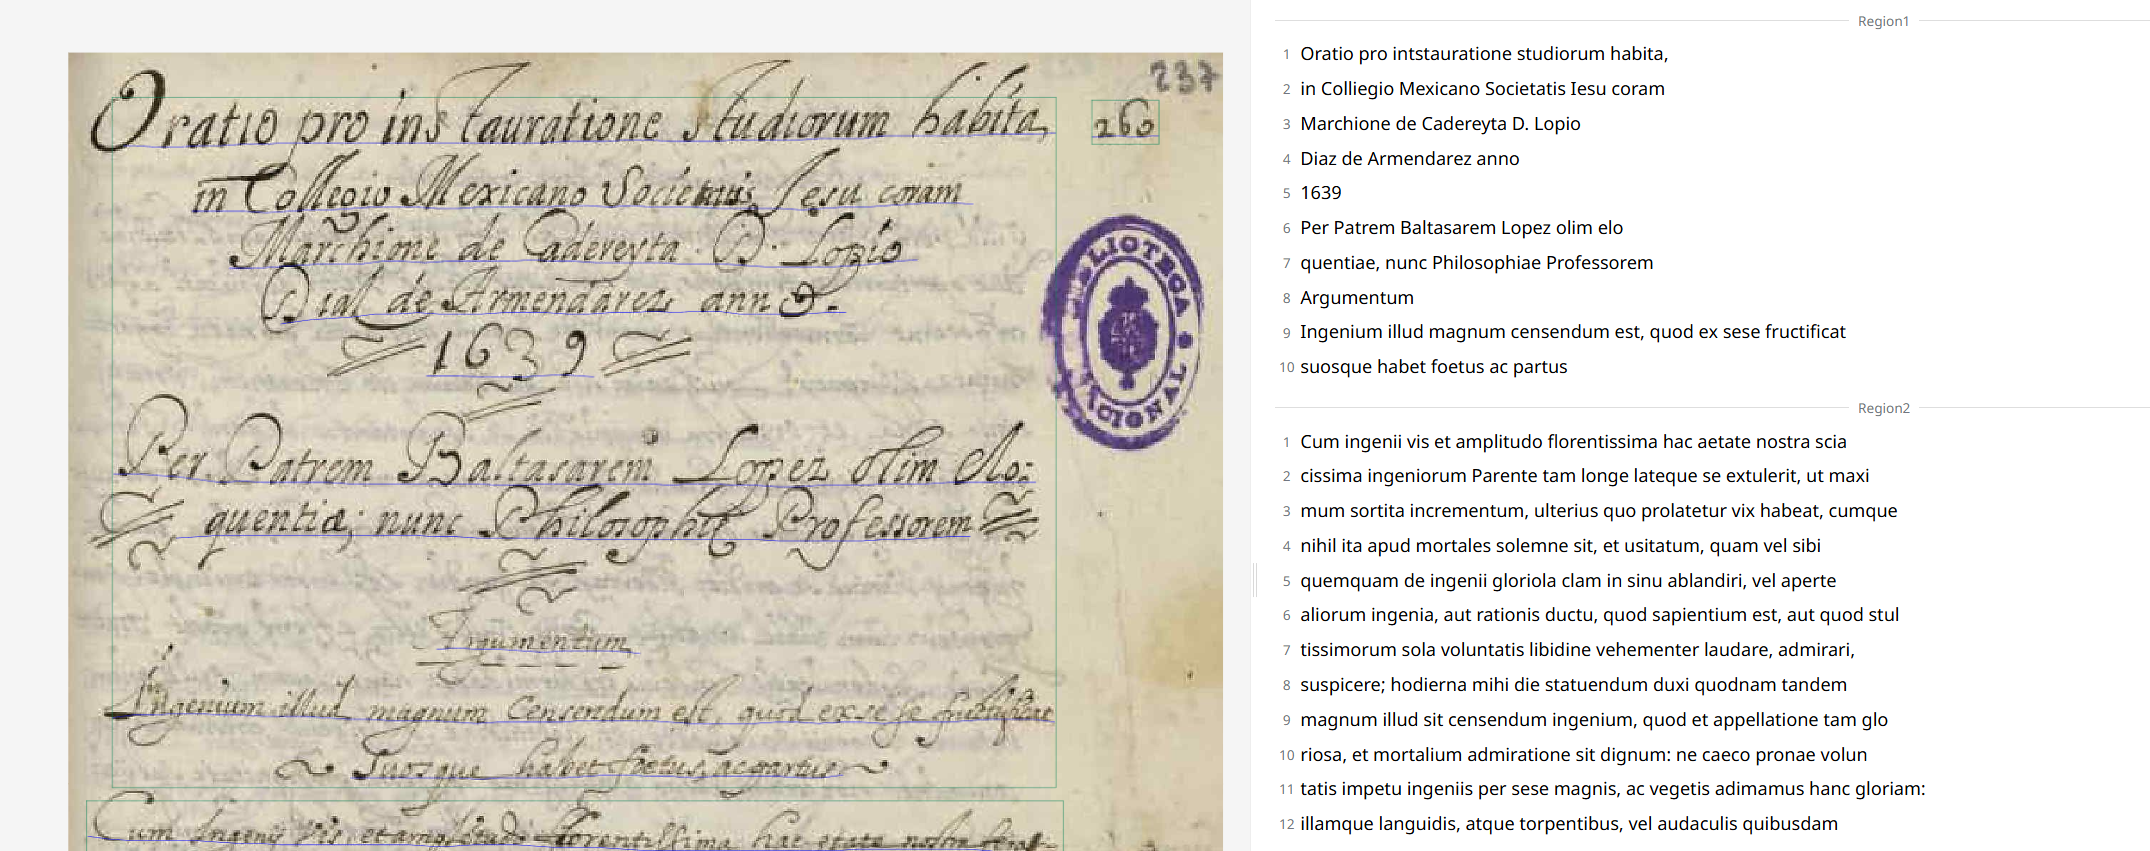 237
Oratio pro instauratione studiorum habita,
260
in Collegio Mexicano Societatis Iesu coram
Marchione de Cadereyta D. Lopio
Diaz de Armendarez anno.
1639
Per Patrem Baltasarem Lopez olim elo:
quentiæ; nunc Philosophiæ Professorem
Argumentum
Ingenium illud magnum censendum est, quod ex se se fructificat
suosque habet foetus ac partus
Cum ingenij vis et amplitudo florentissima hac etate nostra
BIBLIOTECA NACIONAL
Region1
1 Oratio pro intstauratione studiorum habita,
2 in Colliegio Mexicano Societatis Iesu coram
3 Marchione de Cadereyta D. Lopio
4 Diaz de Armendarez anno
5 1639
6 Per Patrem Baltasarem Lopez olim elo
7 quentiae, nunc Philosophiae Professorem
8 Argumentum
9 Ingenium illud magnum censendum est, quod ex sese fructificat
10 suosque habet foetus ac partus
Region2
1 Cum ingenii vis et amplitudo florentissima hac aetate nostra scia
2 cissima ingeniorum Parente tam longe lateque se extulerit, ut maxi
3 mum sortita incrementum, ulterius quo prolatetur vix habeat, cumque
4 nihil ita apud mortales solemne sit, et usitatum, quam vel sibi
5 quemquam de ingenii gloriola clam in sinu ablandiri, vel aperte
6 aliorum ingenia, aut rationis ductu, quod sapientium est, aut quod stul
7 tissimorum sola voluntatis libidine vehementer laudare, admirari,
8 suspicere; hodierna mihi die statuendum duxi quodnam tandem
9 magnum illud sit censendum ingenium, quod et appellatione tam glo
10 riosa, et mortalium admiratione sit dignum: ne caeco pronae volun
11 tatis impetu ingeniis per sese magnis, ac vegetis adimamus hanc gloriam:
12 illamque languidis, atque torpentibus, vel audaculis quibusdam